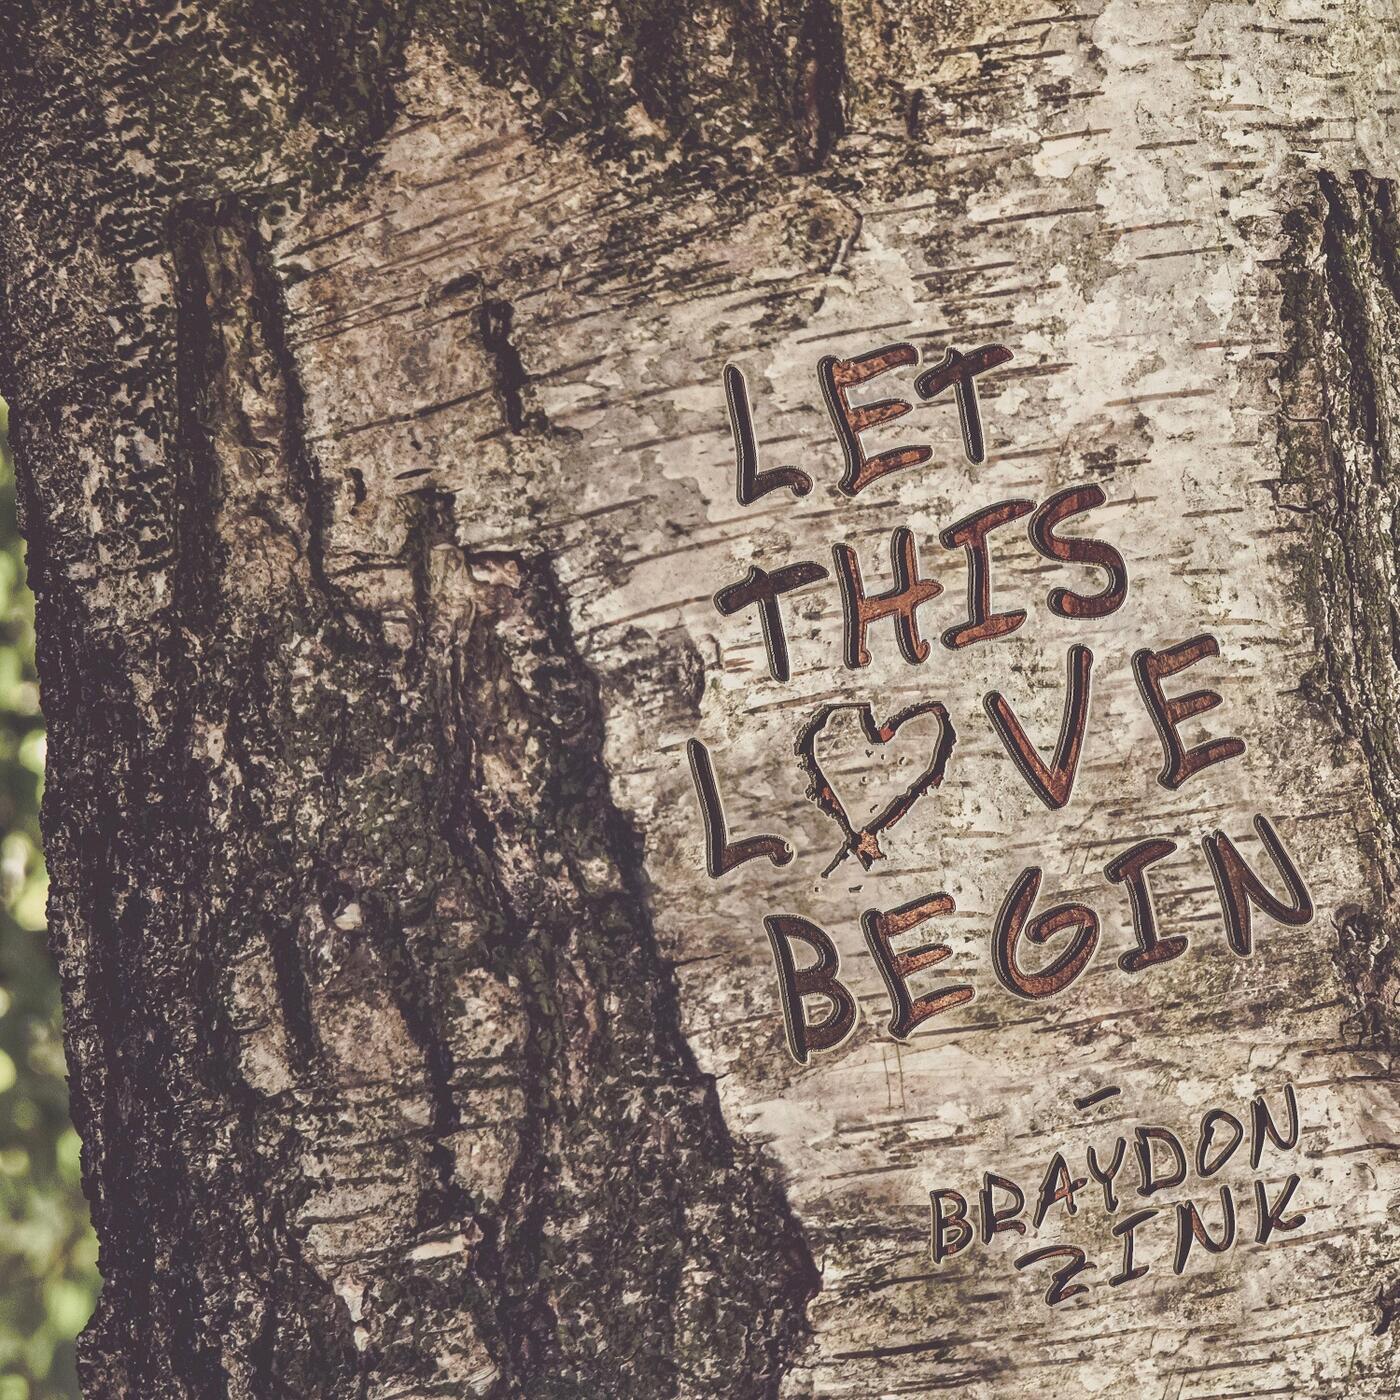 LET
THIS
L♡VE
BEGIN
-
BRAYDON
ZINK